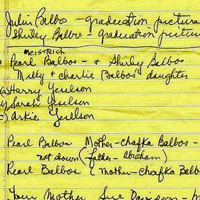 Julia Balbo - graduation picture
Shirley Balbo - graduation pictur
MEISTRICH
Pearl Balbos - & Shirley Balbos
Milly & Charlie Balbos daughter
Harry
Sarah
Pearl Balbos Mother - Chafka Balbos -
not shown Father - Abraham
Pearl Balbos Mother - Chafka Balb
Your Mother Sue